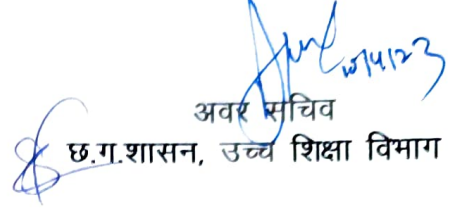 10/4/23
अवर सचिव
छ.ग.शासन, उच्च शिक्षा विभाग